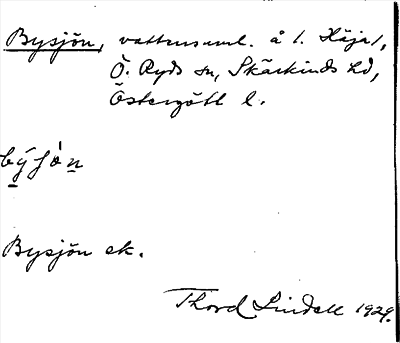 Bysjön, vattensaml. å 1. Häja1,
Ö. Ryds sn, Skärkinds hd,
Östergötl l.
býsjò̀n
Bysjön ek.
Thord Lindell 1929.